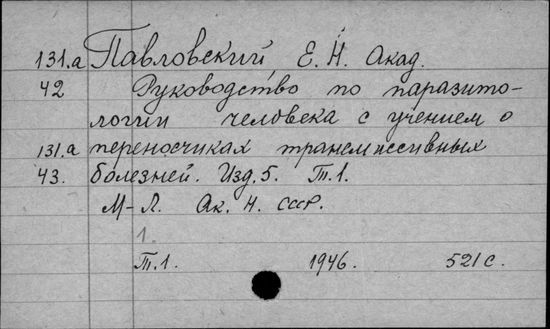 131.a Павловский Е. Н. Акад.
42 Руководство по паразито-
логии человека с учением о
131.a переносчиках трансмиссивных
43. болезней. Изд. 5. Т. 1.
М-Л. Ак. Н. СССР.
1.
Т. 1. 1946. 521 с.